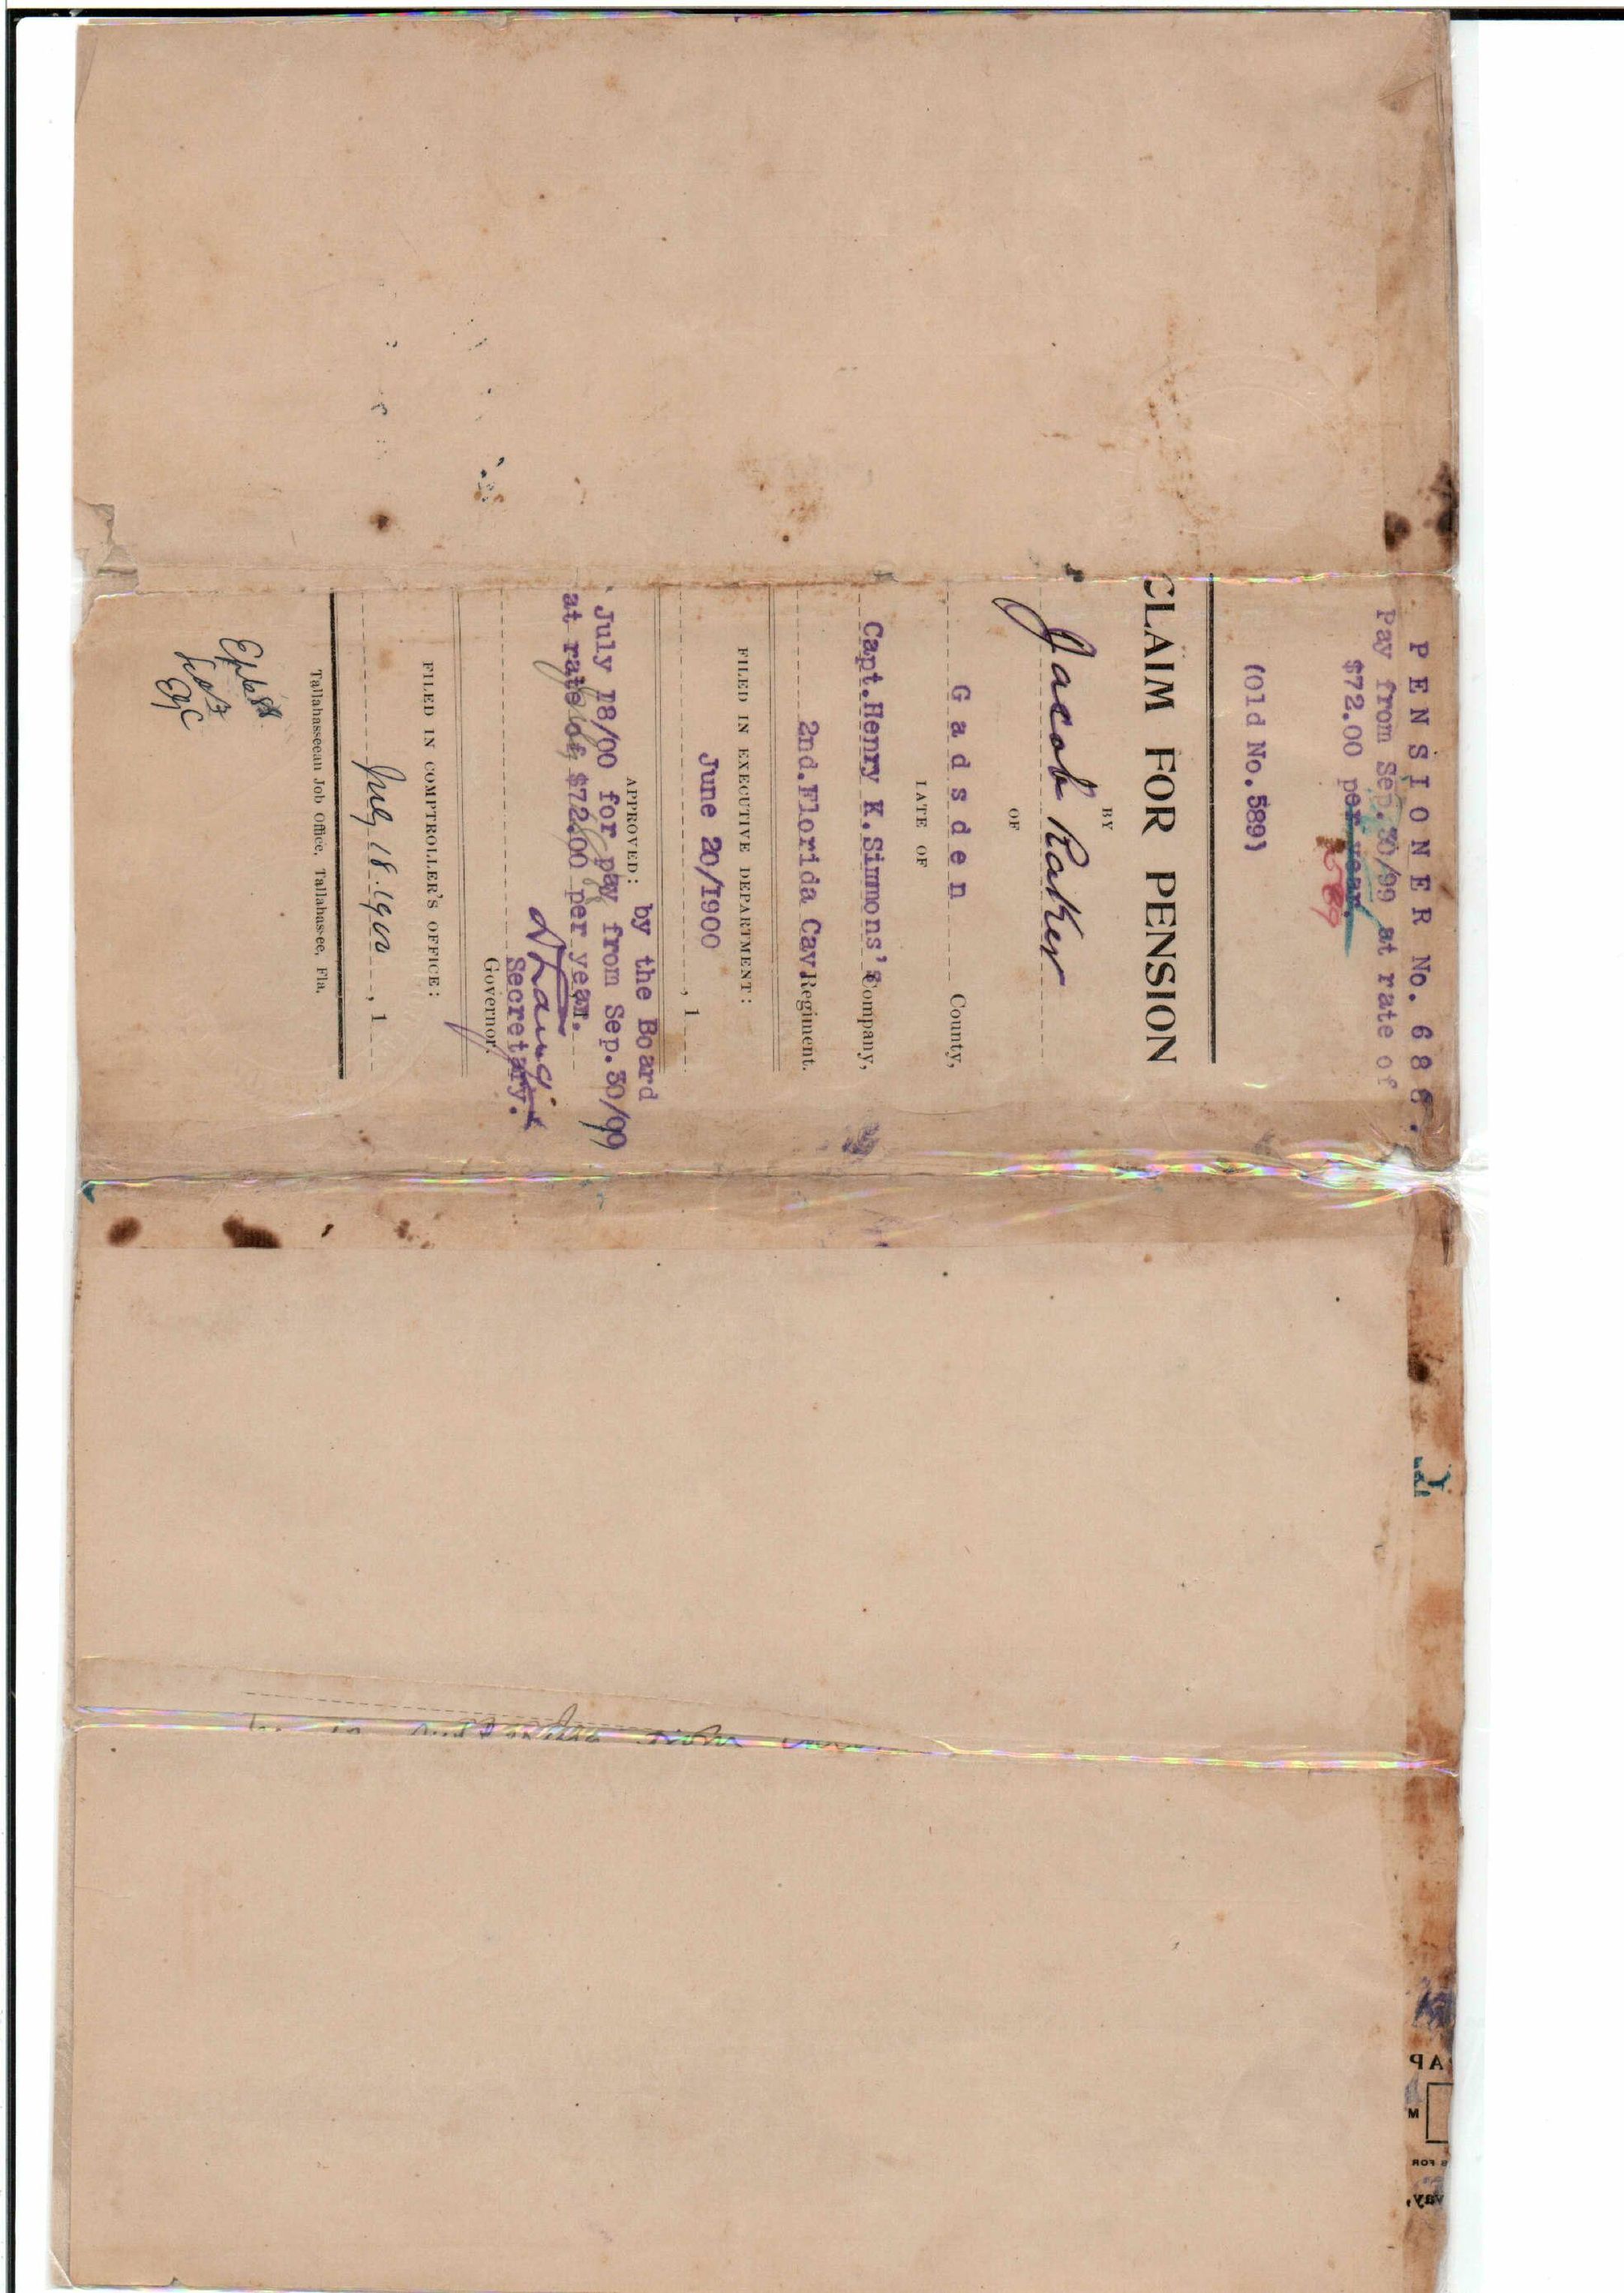 PENSIONER No. 688.
Pay from Sep.30/99 at rate of
$72.00 per year.
(Old No.589)
CLAIM FOR PENSION
BY
Jacob Raker
OF
Gadsden County,
LATE OF
Capt.Henry K.Simmons's Company,
2nd.Florida Cav Regiment.
FILED IN EXECUTIVE DEPARTMENT:
June 20/1900, 1
APPROVED: by the Board
July 18/00 for pay from Sep.30/99
at rate of $72.00 per year.
Secretary.
Governor.
FILED IN COMPTROLLER'S OFFICE:
July 18 1900, 1
Tallahasseean Job Office, Tallahassee, Fla.